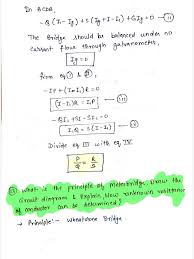 In BCDB,
-Q(I₁-Ig)+S(Ig+I-I₁)+GIg=0 —(ii)
The Bridge should be balanced under no
current flow through galvanometer,
Ig=0
from eqⁿ & ,
-IP+(I-I₁)R=0
(I-I₁)R=I₁P —(iii)
-QI₁+SI-SI₁=0
I₁Q=S(I-I₁)
Divide eqⁿ III with eqⁿ IV
P/Q=R/S
What is the principle of meterbridge. Draw the
Circuit diagram & Explain How unknown resistance
of conductor can be determined?
→ Principle:- Wheatstone Bridge.